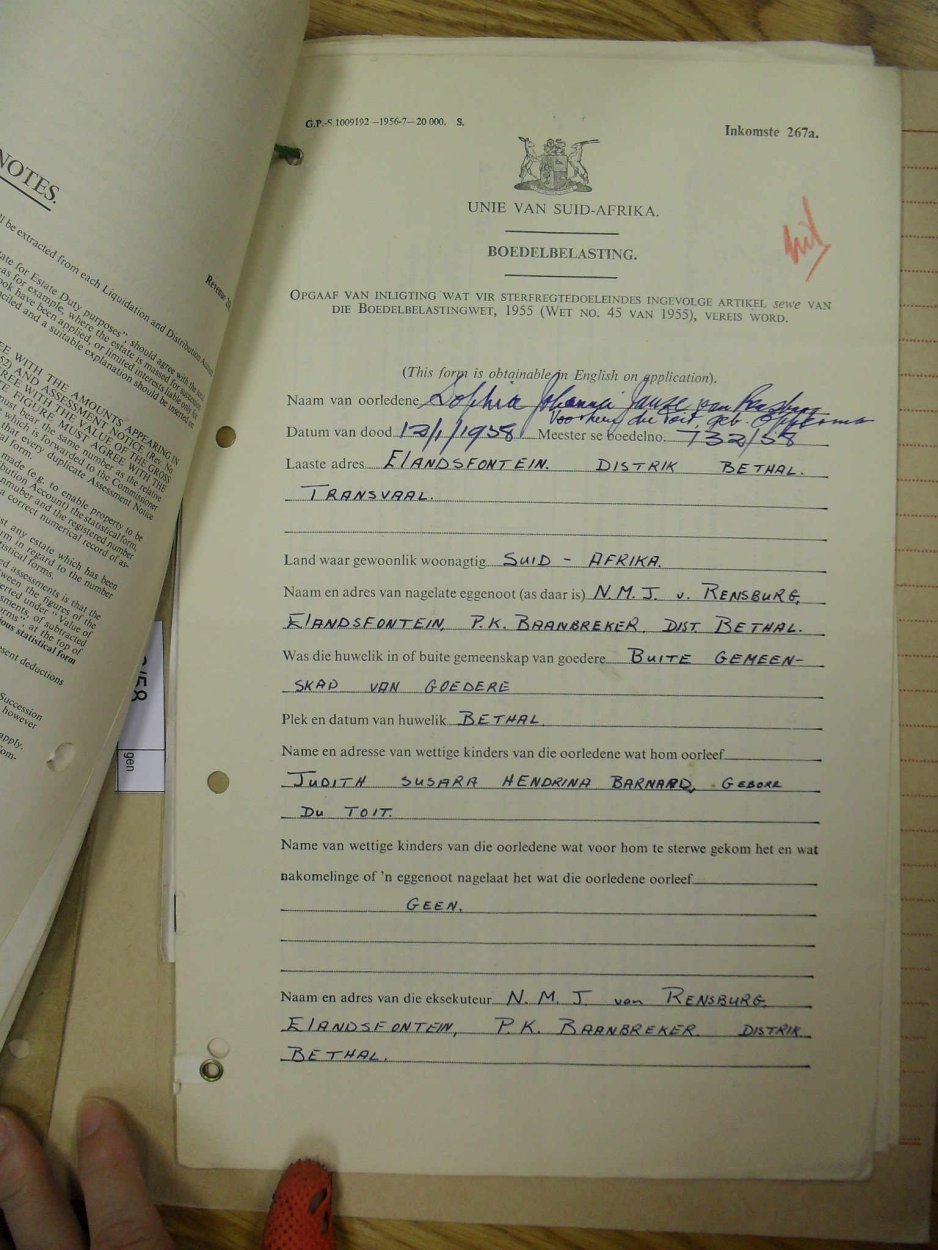 NOTES.
Revenue 26
ll be extracted from each Liquidation and Distribution Account
ate for Estate Duty purposes" should agree with the total
as for example, where the estate is massed for succession
ook have been applied, or limited interests
ciled and a suitable explanation should be inserted on
EE WITH THE AMOUNTS APPEARING IN
AND ASSESSMENT NOTICE (Rev. No.
GREE WITH THE VALUE OF THE GROSS
FIGURE MUST AGREE WITH THE
must bear the same number as the relative
which is forwarded to the Commissioner
that every duplicate Assessment Notice
al form.
made (e.g. to enable property to be
bution Account) the statistical form,
number and the registered number
a correct numerical record of as-
st any estate which has been
rm in regard to the number
tistical forms.
ed assessments is that the
ween the figures of the
erted under "Value of
sments, of subtracted
orms", at the top of
ious statistical form
sent deductions
Succession
however
apply.
/58
gen
G.P.-S.1009192 —1956-7—20 000. S.
Inkomste 267a.
UNIE VAN SUID-AFRIKA.
BOEDELBELASTING.
nil
OPGAAF VAN INLIGTING WAT VIR STERFREGTEDOELEINDES INGEVOLGE ARTIKEL sewe VAN
DIE BOEDELBELASTINGWET, 1955 (WET NO. 45 VAN 1955), VEREIS WORD.
(This form is obtainable in English on application).
Naam van oorledene Sophia Johanna Janze van Rensburg
Voorheen du Toit, geb. Opperma
Datum van dood 12/1/1958 Meester se boedelno. 732/58
Laaste adres ELANDSFONTEIN. DISTRIK BETHAL.
TRANSVAAL.
Land waar gewoonlik woonagtig SUID - AFRIKA.
Naam en adres van nagelate eggenoot (as daar is) N.M.J. v. RENSBURG,
ELANDSFONTEIN, P.K. BAANBREKER, DIST. BETHAL.
Was die huwelik in of buite gemeenskap van goedere BUITE GEMEEN-
SKAP VAN GOEDERE
Plek en datum van huwelik BETHAL.
Name en adresse van wettige kinders van die oorledene wat hom oorleef
JUDITH SUSARA HENDRINA BARNARD, GEBORE
DU TOIT.
Name van wettige kinders van die oorledene wat voor hom te sterwe gekom het en wat
nakomelinge of 'n eggenoot nagelaat het wat die oorledene oorleef
GEEN.
Naam en adres van die eksekuteur N. M. J. van RENSBURG
ELANDSFONTEIN, P.K. BAANBREKER. DISTRIK
BETHAL.